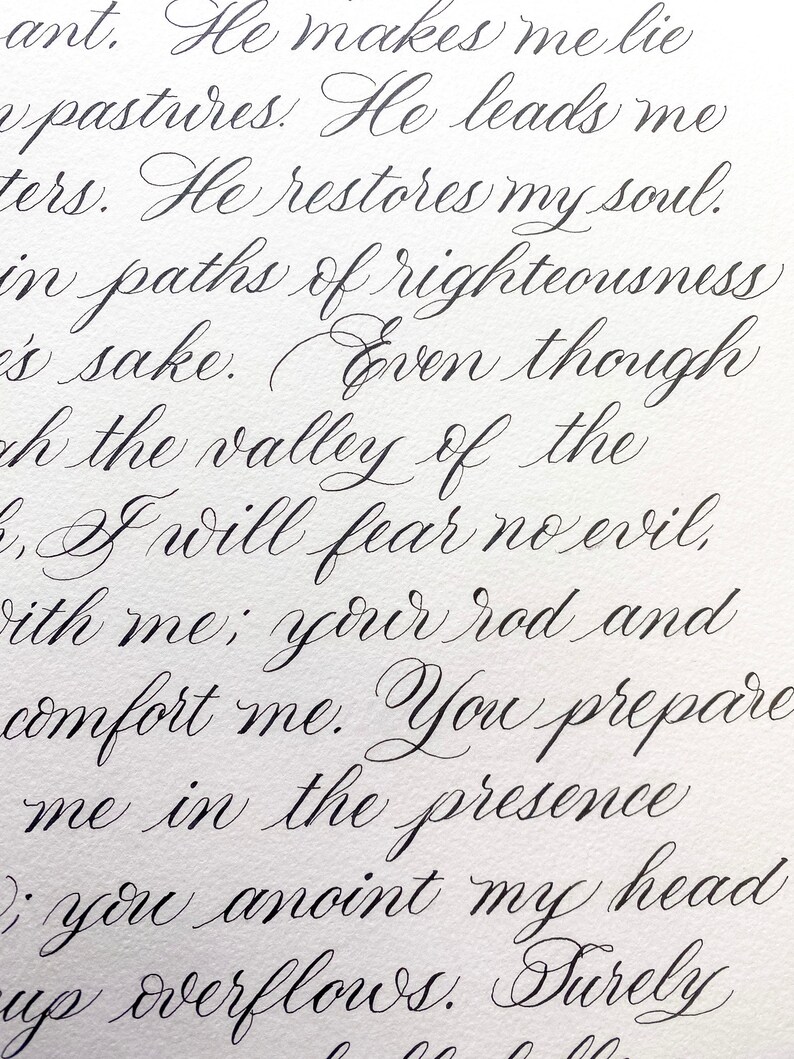 ant. He makes me lie
n pastures. He leads me
ters. He restores my soul.
in paths of righteousness
e's sake. Even though
gh the valley of the
h, I will fear no evil,
with me; your rod and
comfort me. You prepare
me in the presence
; you anoint my head
cup overflows. Surely